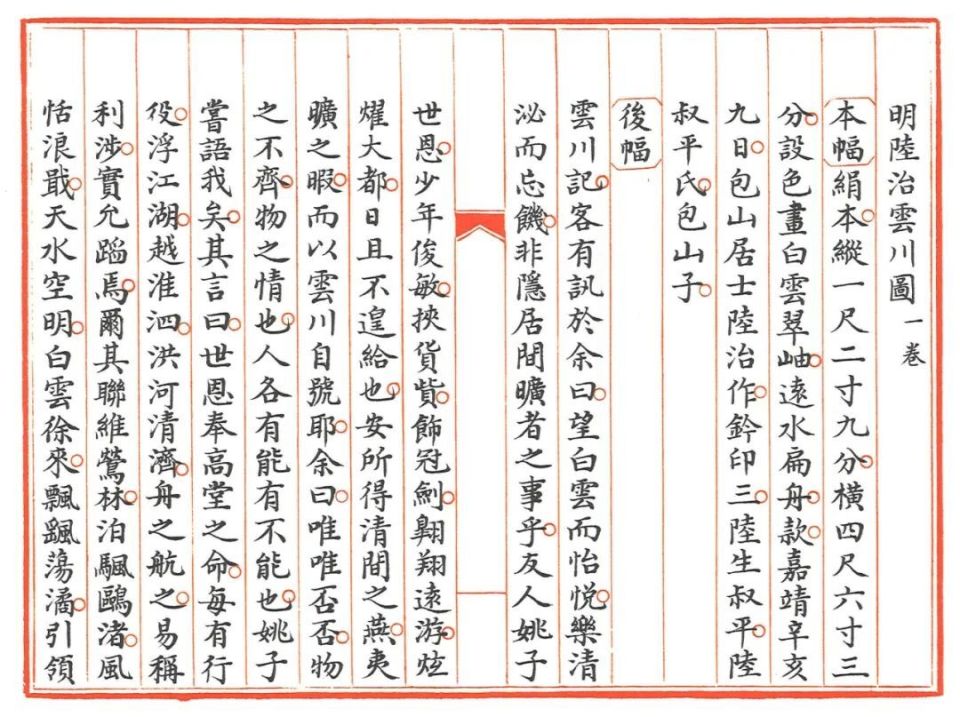 明陸治雲川圖 一卷
本幅絹本縱一尺二寸九分橫四尺六寸三
分設色畫白雲翠岫遠水扁舟款嘉靖辛亥
九日包山居士陸治作鈐印三陸生叔平陸
叔平氏包山子
後幅
雲川記客有訊於余曰望白雲而怡悅樂清
泌而忘饑非隱居閒曠者之事乎友人姚子
世恩少年俊敏挾貨貲飾冠劍翱翔遠游炫
燿大都日且不遑給也安所得清閒之燕夷
曠之暇而以雲川自號耶余曰唯唯否否物
之不齊物之情也人各有能有不能也姚子
嘗語我矣其言曰世恩奉高堂之命每有行
役浮江湖越淮泗洪河清濟舟之航之易稱
利涉實允蹈焉爾其聯維鶯林泊颿鷗渚風
恬浪戢天水空明白雲徐來飄颻蕩潏引領